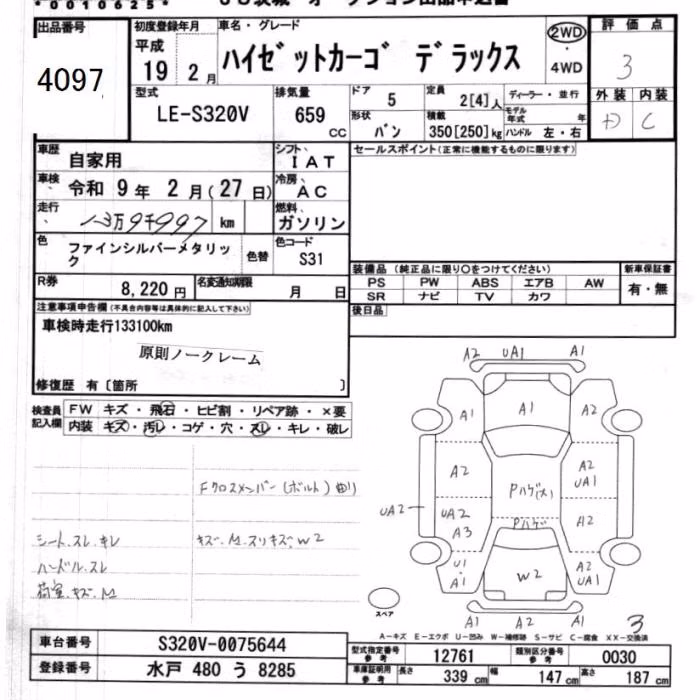 *0010625*
出品番号
4097
初度登録年月
平成
19 2 月
車名・グレード
ハイゼットカーゴ デラックス
2WD
・
4WD
評価点
3
外装 内装
C
型式
LE-S320V
排気量
659
CC
ドア
5
形状
バン
定員
2[4]人
積載
350[250]kg
ディーラー・並行
モデル年式 年
ハンドル 左・右
車歴
自家用
シフト
IAT
セールスポイント(正常に機能するものに限ります)
車検
令和 9 年 2 月(27 日)
冷房
AC
走行
13万9千997 km
燃料
ガソリン
色
ファインシルバーメタリック
色替
色コード
S31
R券
8,220 円
名変通知期限
月 日
装備品(純正品に限り○をつけてください)
PS PW ABS エアB AW
SR ナビ TV カワ
新車保証書
有・無
後日品
注意事項申告欄(不具合内容等は具体的に記入して下さい)
車検時走行133100km
原則ノークレーム
修復歴 有〔箇所 〕
検査員記入欄
FW キズ・飛石・ヒビ割・リペア跡・×要
内装 キズ・汚レ・コゲ・穴・スレ・キレ・破レ
Fクロスメンバー(ボルト)曲リ
シート.スレ.キレ
キズ.M.スリキズ.W2
ハンドル.スレ
荷室.キズ.M
A2 UA1 A1
A1 A1 A2
A2 Pハゲ(大) A2 UA1
UA2 UA2 A3 Pハゲ A2
U1 A1 W2 A2 UA1
スペア
A2 A2 A1
3
A-キズ E-エクボ U-凹み W-補修跡 S-サビ C-腐食 XX-交換済
車台番号
S320V-0075644
登録番号
水戸 480 う 8285
型式指定番号
参考
12761
類別区分番号
参考
0030
車庫証明用
参考
長さ 339 cm 幅 147 cm 高さ 187 cm